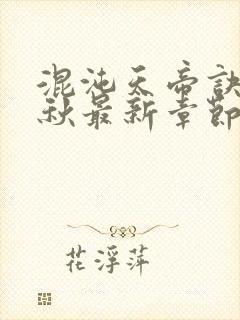 混沌天帝诀
秋最新章節
花浮萍